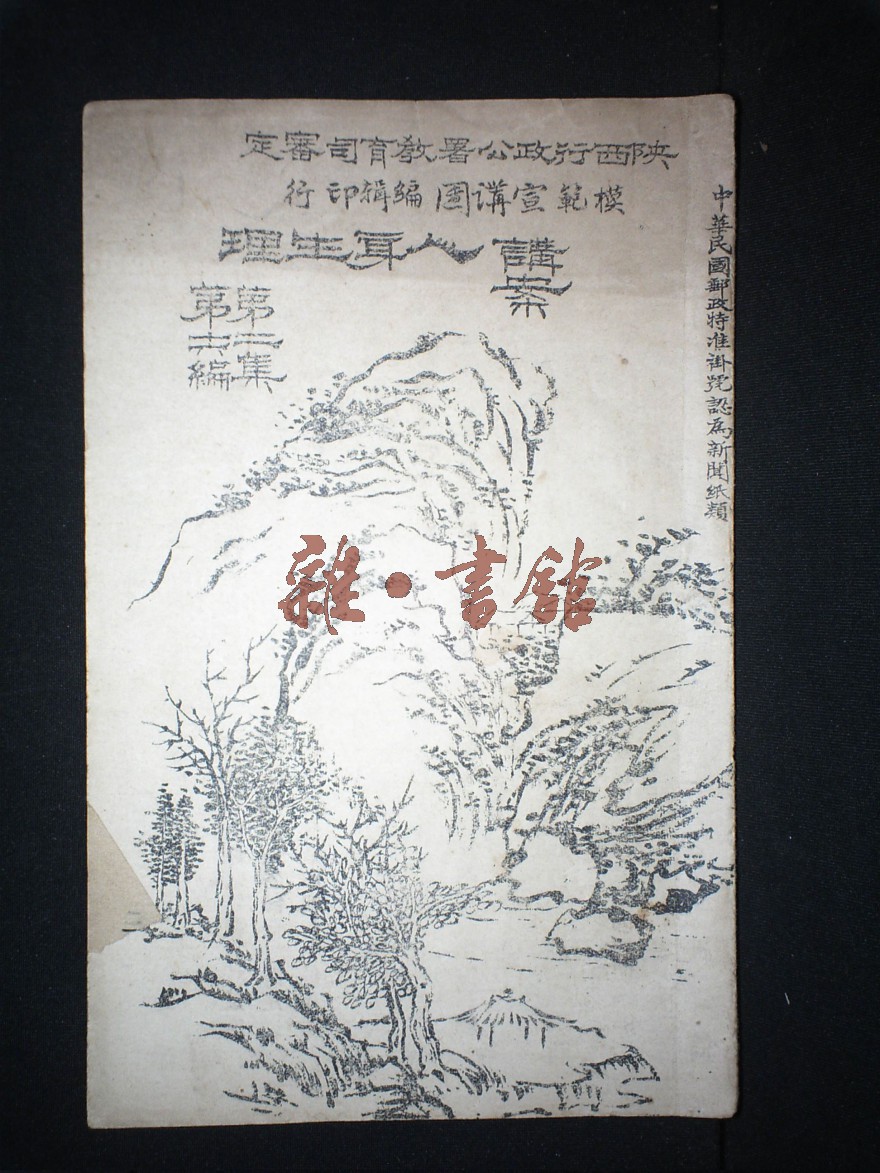 陝西行政公署教育司審定
模範宣講團編輯印行
講案
人身生理
第二集
第六編
中華民國郵政特准掛號認為新聞紙類
雜·書館